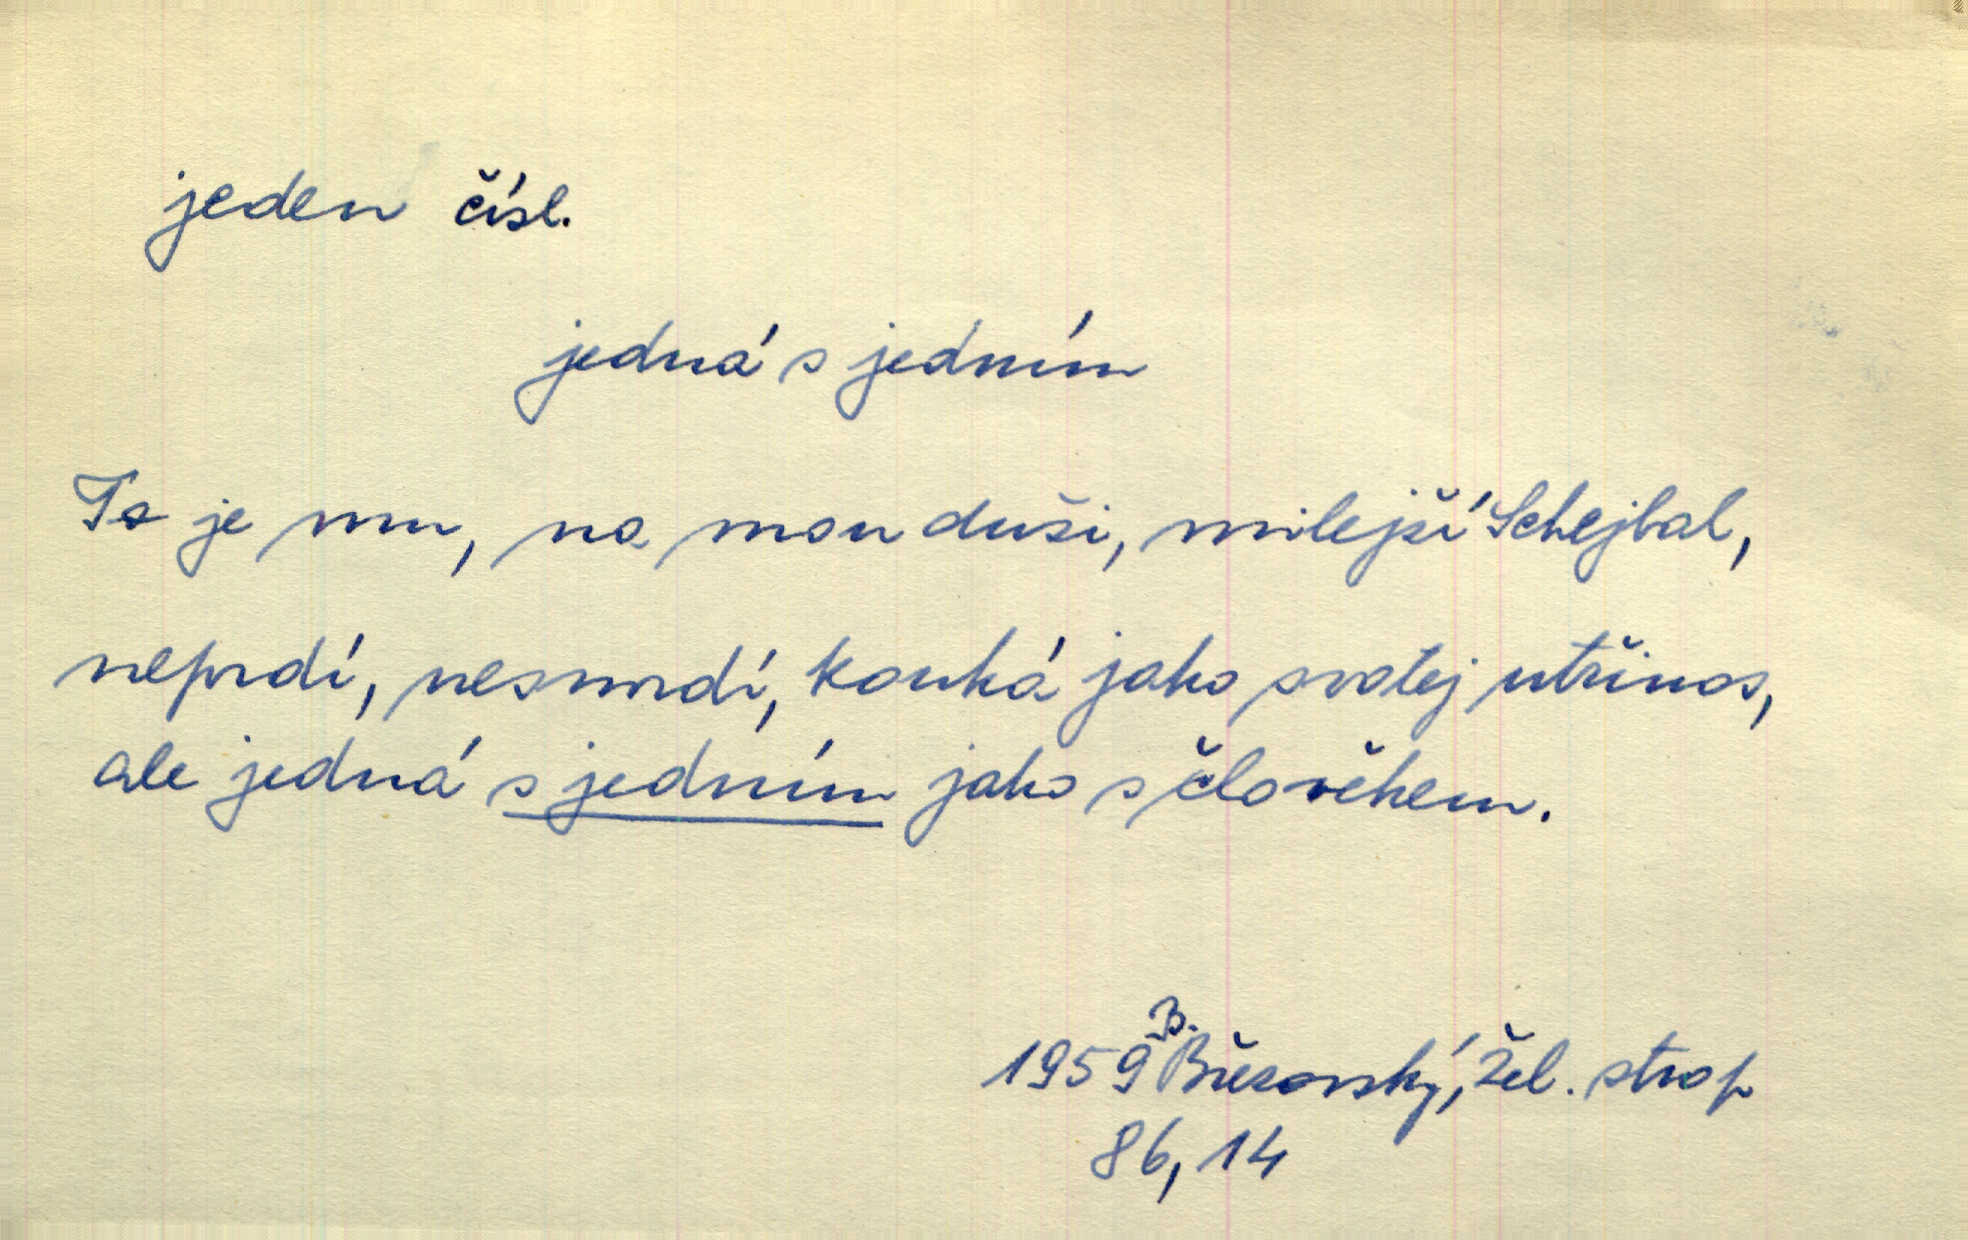 jeden čísl.
jedná s jedním
To je mu, na mou duši, milejší Schejbal,
neprdí, nesmrdí, kouká jako svatej utřinos,
ale jedná s jedním jako s člověkem.
B.
1959 Březovský, Žel. strop
86, 14